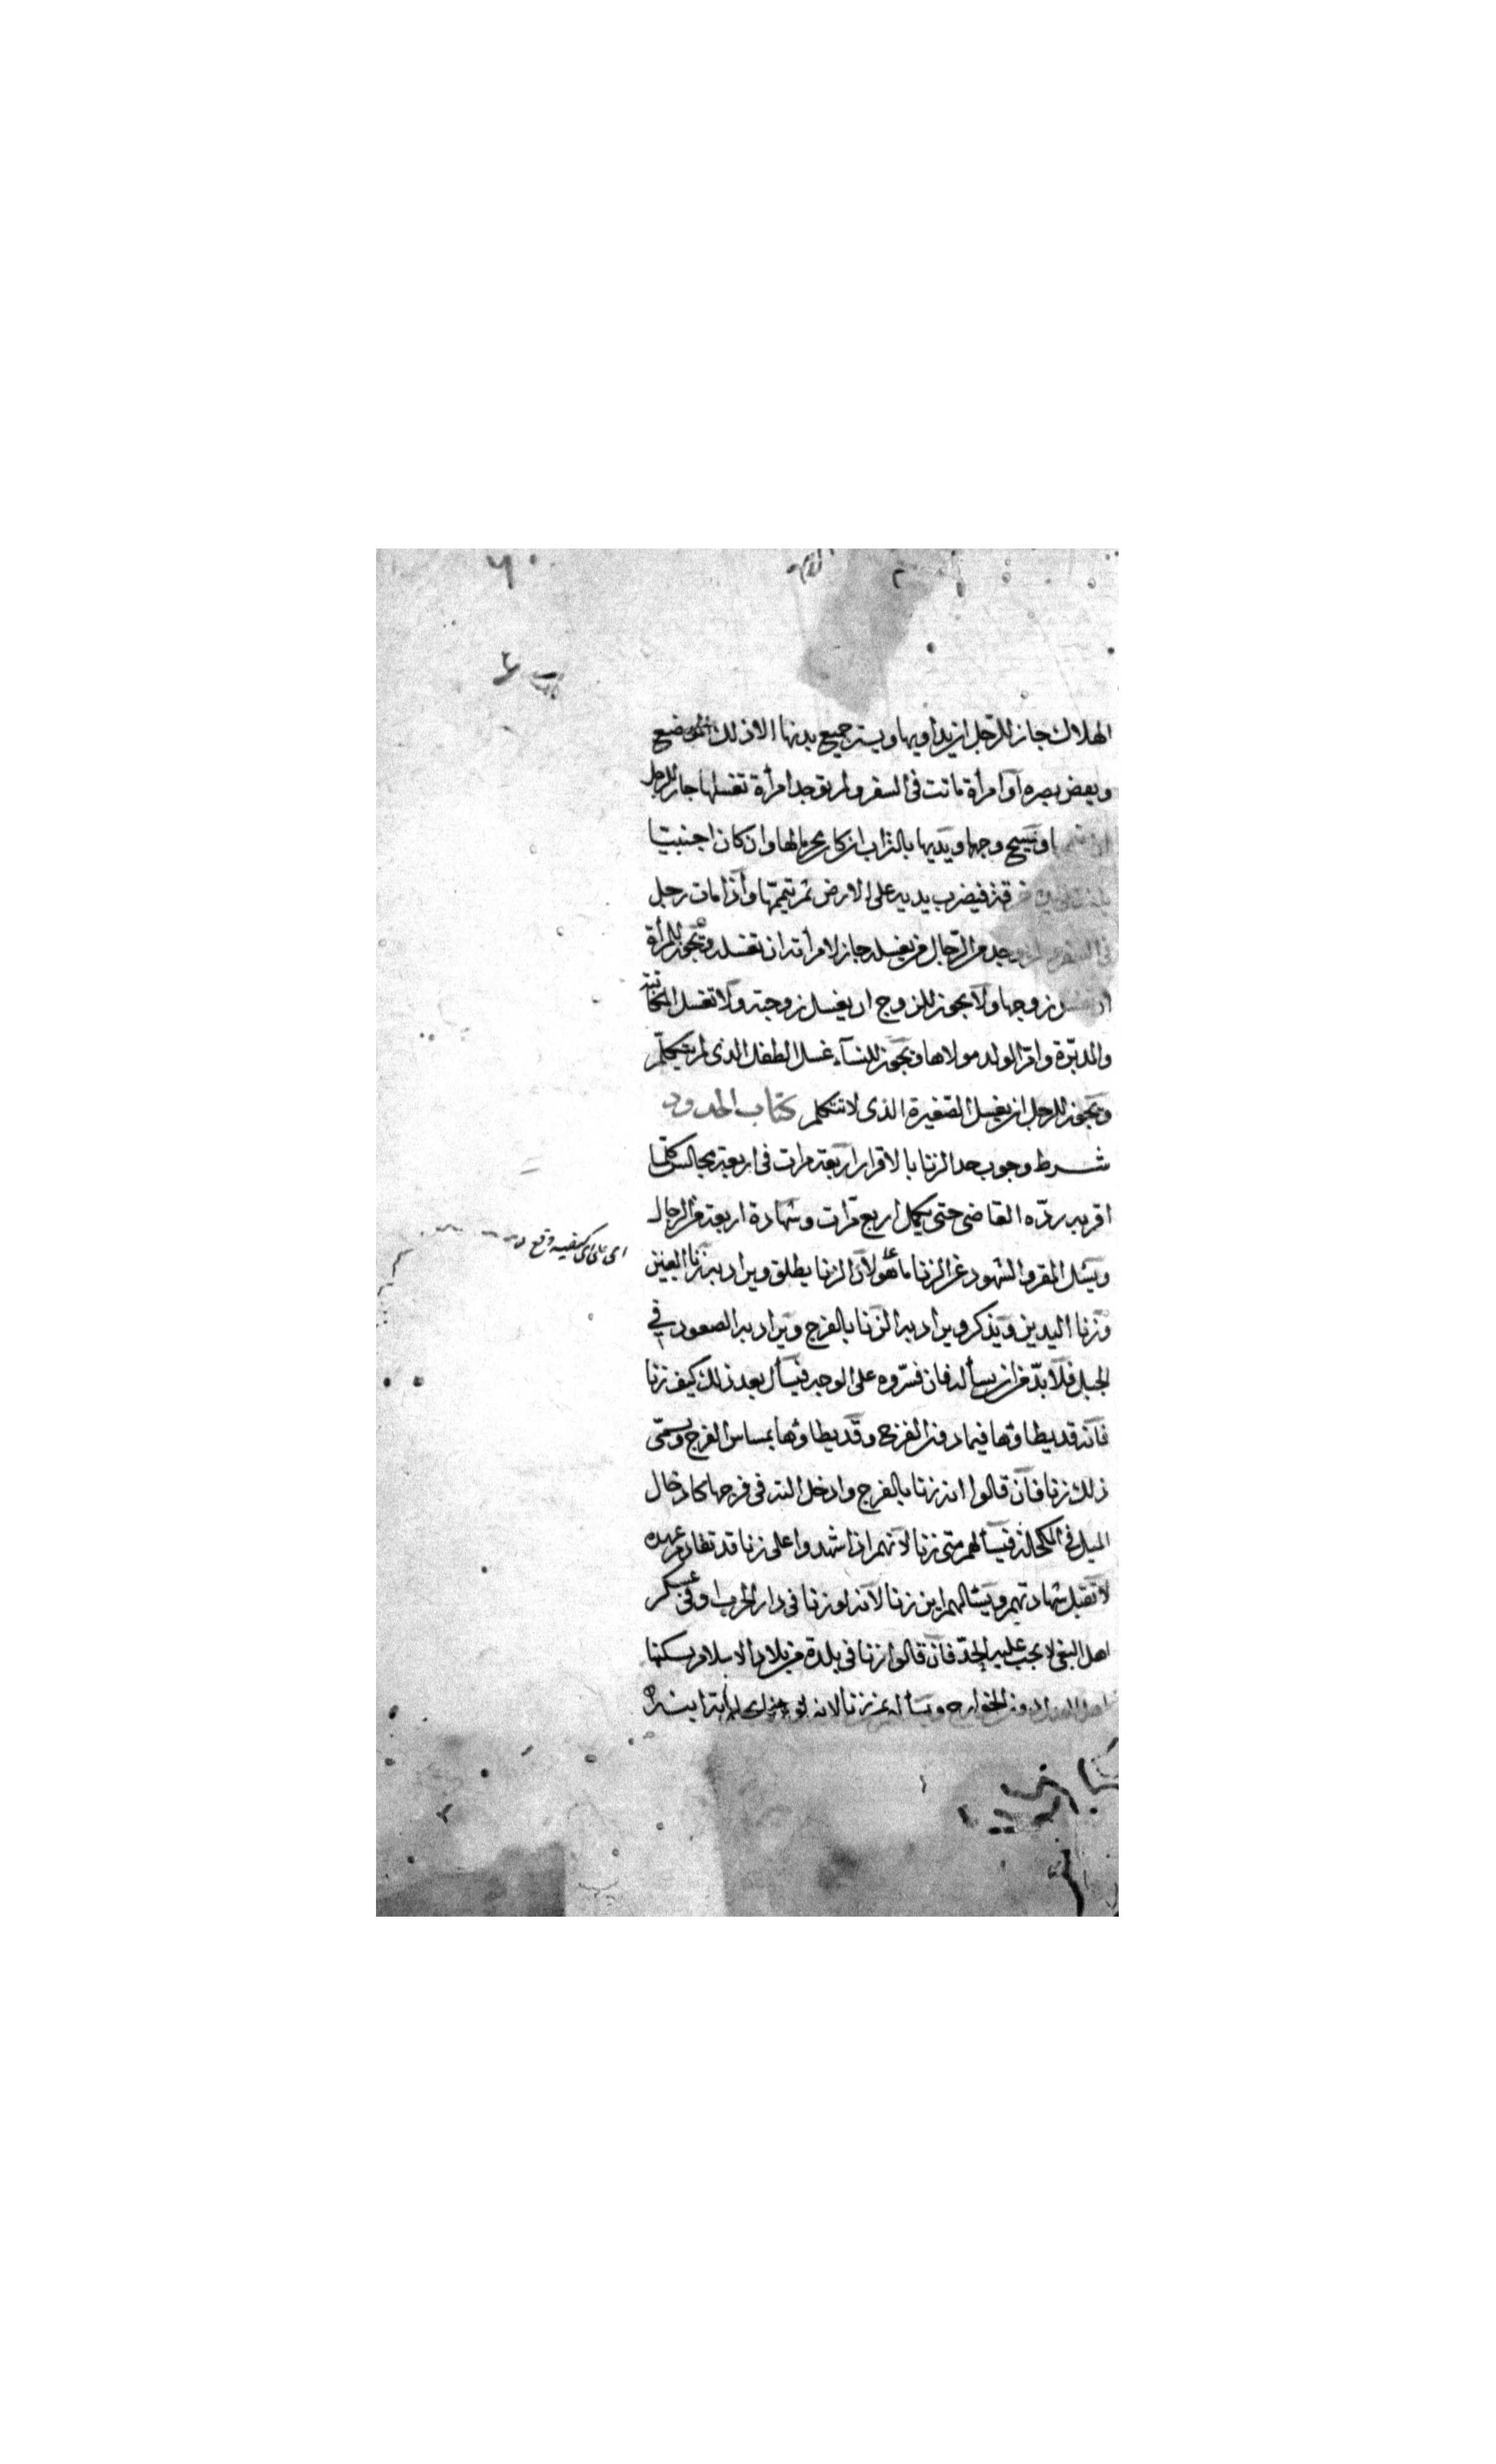 الهلاك جاز للرّجل ان يداويها ويستر جميع بدنها الا ذلك الموضع
ويغض بصره او امرأة ماتت فى السفر ولم توجد امرأة تغسلها جاز للرجل
ان ويمسح وجهها ويديها بالتراب ان كان محرما لها وان كان اجنبيتا
خرقة فيضرب يديه على الارض ثم تيممها واذا مات رجل
فى السفر من الرّجال من يغسله جاز لامرأته ان تغسله ويجوز للمرأة
ان تغسل زوجها ولا يجوز للزوج ان يغسل زوجته ولا تغسل المكاتبة
والمدبّرة وامّ الولد مولاها ويجوز للنسآء غسل الطفل الذى لم يتكلّم
ويجوز للرجل ان يغسل الصّغيرة الذى لا تتكلم كتاب الحدود
شرط وجوب حد الزنا بالاقرار اربعة مرات فى اربعة مجالس كلّما
اقر به ردّه القاضى حتى يكمل اربع مرّات وشهادة اربعة من الرجال
ويسئل المقر والشهود عن الزنا ما هو لانّ الزنا يطلق ويراد به زنا العينين
وزنا اليدين ويذكر ويراد به الزنا بالفرج ويراد به الصعود فى
الجبل فلا بدّ من ان يسأله فان فسّروه على الوجه فيسأل بعد ذلك كيف زنا
فانه قد يطاوها فيما دون الفرج وقد يطاوها بمساس الفرج ويسمّى
ذلك زنا فان قالوا انه زنا بالفرج وادخل الته فى فرجها كادخال
الميل فى المكحلة فيسألهم متى زنا لانّهم اذا شهدوا على زنا قد تقادم عهده
لا تقبل شهادتهم ويسئالهم اين زنا لانه لو زنا فى دار الحرب او فى عسكر
اهل البغى لا يجب عليه الحدّ فان قالوا زنا فى بلدة من بلاد الاسلام يسكنها
اهل العدل دون الخوارج ويسأله بمن زنا لانه لو ابنه
اى باى كيفيه وقع